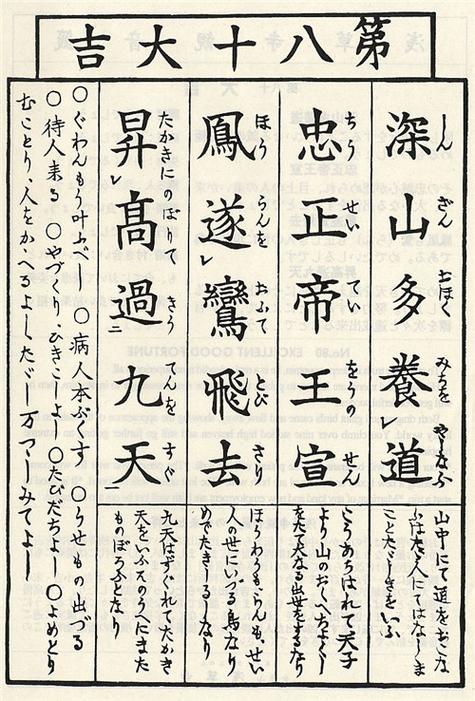 第八十大吉
深山多養レ道
しん ざん おほく みちを やしなふ
山中にて道をおこな
こと
をいふ
忠正帝王宣
ちう せい てい をうの せん
こうあらはれて天子
より山のおくへちよくし
をたて大なる出世をするなり
鳳遂レ鸞飛去
ほう らんを おふて とび さり
ほうわうもらんも、せい
人の世にいづる鳥なり
めでたきしるしなり
昇レ高過二九天
たかきに のぼり きう てんを すぐ
九天はすぐれてたかき
天をいふそのうへにまた
ものぼらふとなり
○ぐわんもう叶ふべし ○病人本ぶくす ○うせもの出づる
○待人来る ○やづくり、ひきこしよし ○たびだちよし ○よめとり
むことり、人をかゝゆるよしたゞし万つゝしみてよし